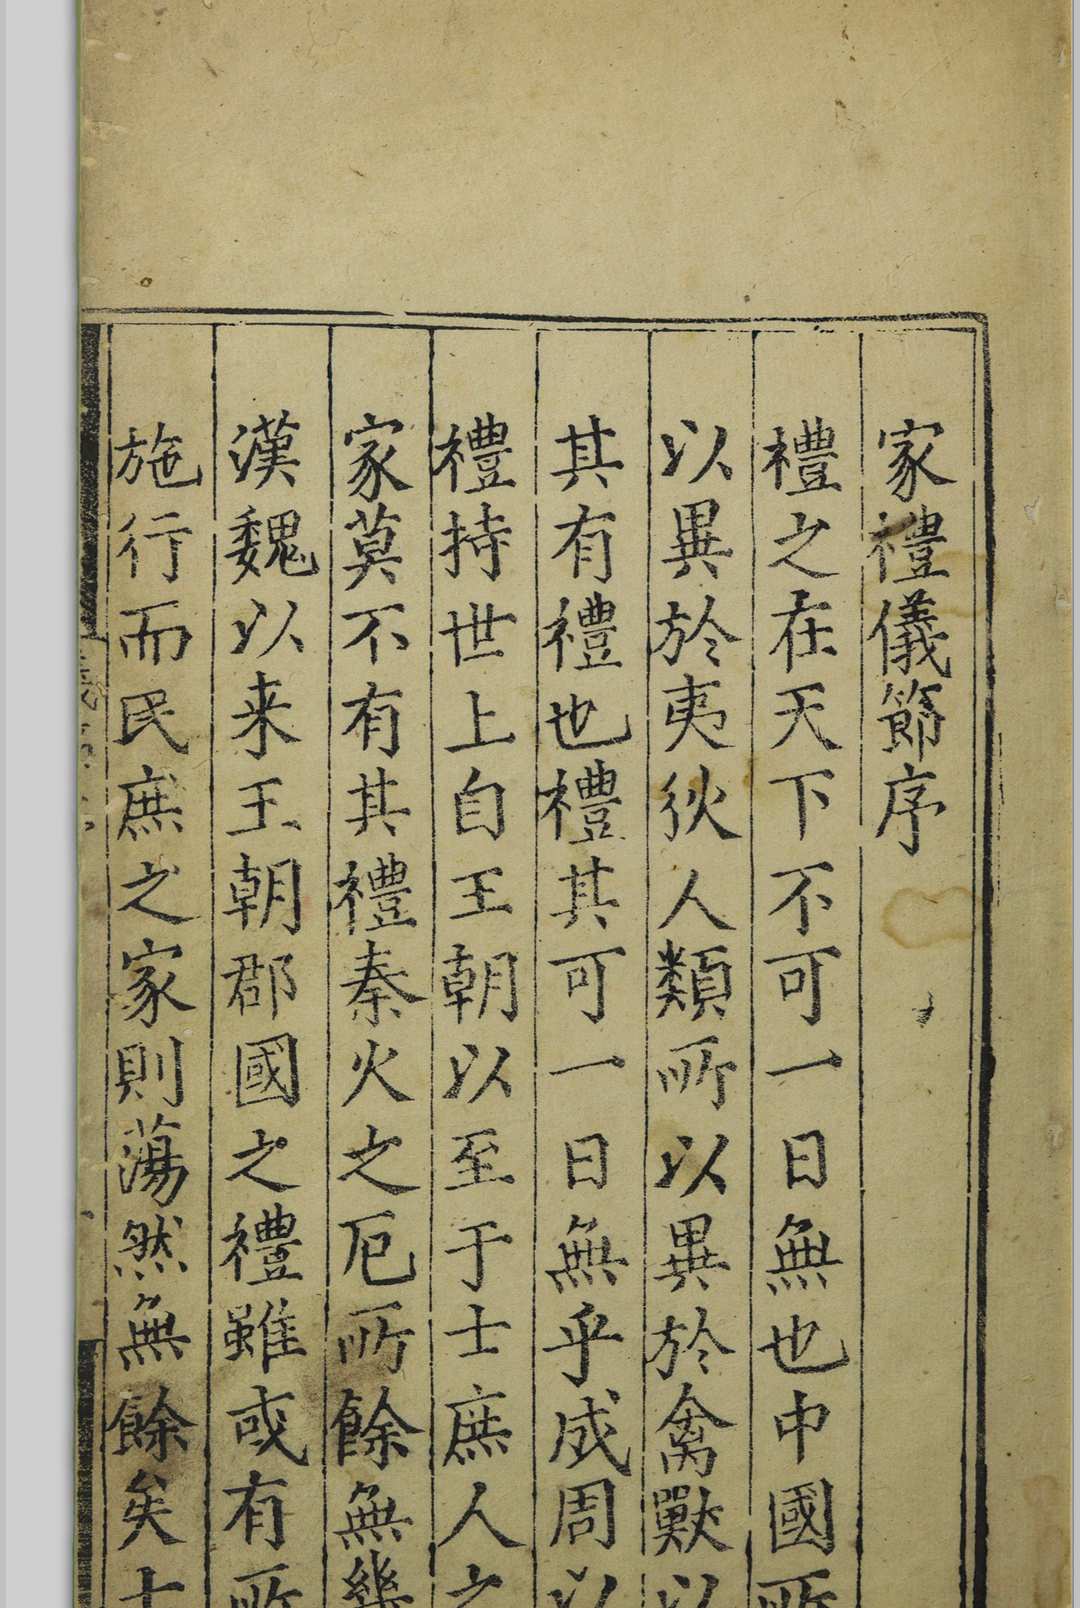 家禮儀節序
禮之在天下不可一日無也中國所
以異於夷狄人類所以異於禽獸以
其有禮也禮其可一日無乎成周以
禮持世上自王朝以至于士庶人之
家莫不有其禮秦火之厄所餘無幾
漢魏以来王朝郡國之禮雖或有所
施行而民庶之家則蕩然無餘矣士